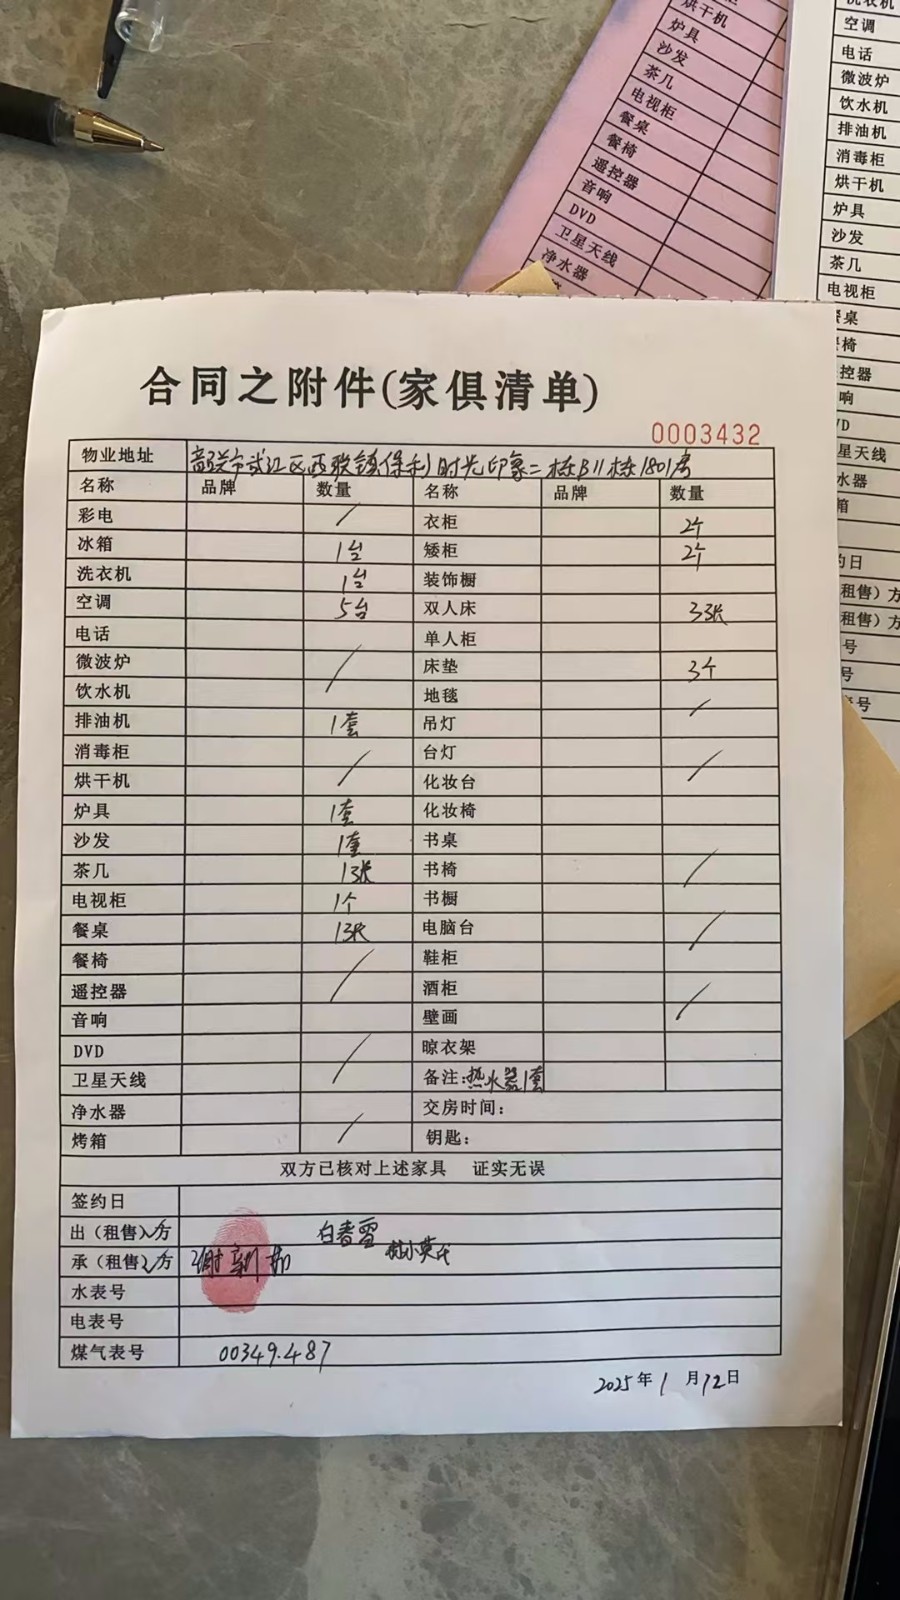 合同之附件(家俱清单)
0003432
物业地址 韶关市武江区西联镇保利时光印象二栋B11栋1801房
名称 品牌 数量 名称 品牌 数量
彩电 / 衣柜 2个
冰箱 1台 矮柜 2个
洗衣机 1台 装饰橱
空调 5台 双人床 3张
电话 单人柜
微波炉 / 床垫 3个
饮水机 地毯 /
排油机 1套 吊灯
消毒柜 台灯 /
烘干机 / 化妆台
炉具 1套 化妆椅
沙发 1套 书桌
茶几 1张 书椅 /
电视柜 1个 书橱
餐桌 1张 电脑台 /
餐椅 / 鞋柜
遥控器 酒柜 /
音响 壁画
DVD / 晾衣架
卫星天线 备注:热水器1套
净水器 交房时间:
烤箱 / 钥匙:
双方已核对上述家具 证实无误
签约日
出(租售)方 白春雪
承(租售)方 谢新
水表号
电表号
煤气表号 00349.487
2025年1月12日
烘干机
炉具
沙发
茶几
电视柜
餐桌
餐椅
遥控器
音响
DVD
卫星天线
净水器
洗衣机
空调
电话
微波炉
饮水机
排油机
消毒柜
烘干机
炉具
沙发
茶几
电视柜
桌
椅
控器
响
VD
星天线
水器
箱
约日
租售)方
租售)方
号
号
号